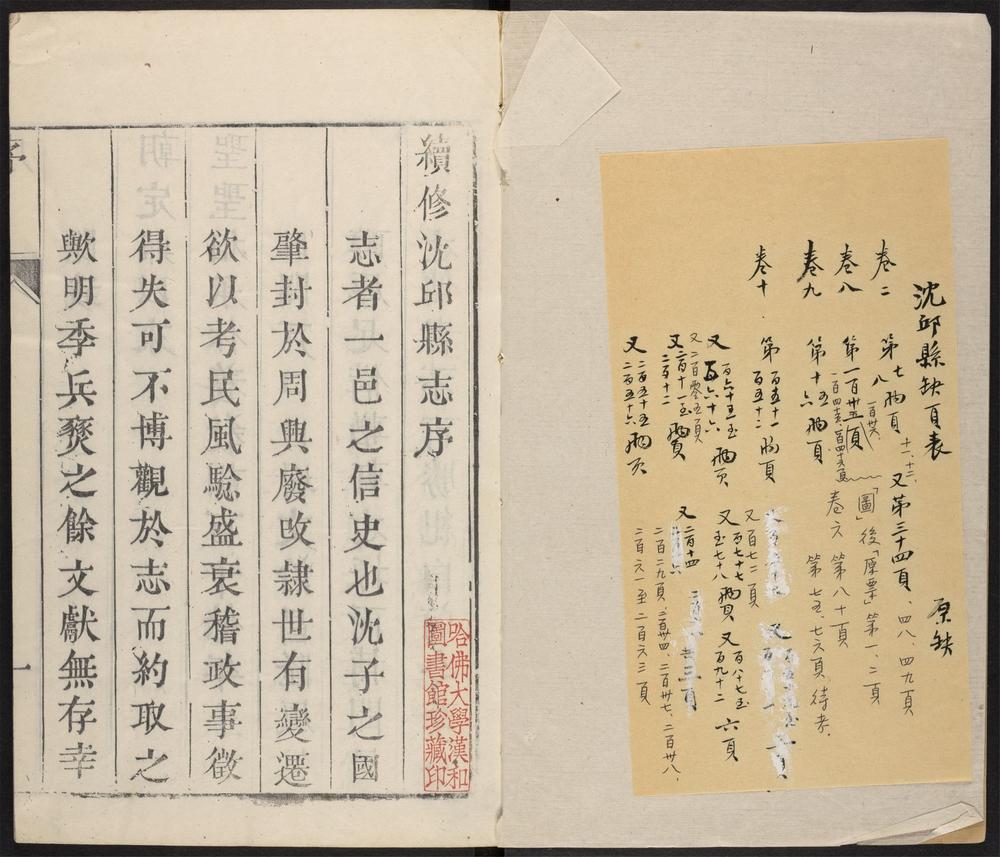 沈邱縣缺頁表　原缺
卷二　第七、八兩頁　十一、十二、　又第三十四頁、四八、四九頁
卷八　第一百廿五頁　一百廿八、　「圖」後「原票」第一、二頁
卷六　第八十頁
卷九　第十五、六兩頁　第七五、七六頁待考、
卷十　第百五十一、百五十二兩頁
又百六十五至百六十六兩頁
又二百零五頁
又百七二頁
又百七十七至七十八兩頁　又百八十七至百九十二六頁
又二百十一至二百十二兩頁
又二百十四
又二百五十五、二百五十六兩頁
二百二九頁、二百卅四、二百卅七、二百卅八、
二百六一至二百六三頁
續修沈邱縣志序
志者一邑之信史也沈子之國
肇封於周興廢改隸世有變遷
欲以考民風驗盛衰稽政事徵
得失可不博觀於志而約取之
歟明季兵燹之餘文獻無存幸
序
一
哈佛大學漢和
圖書館珍藏印